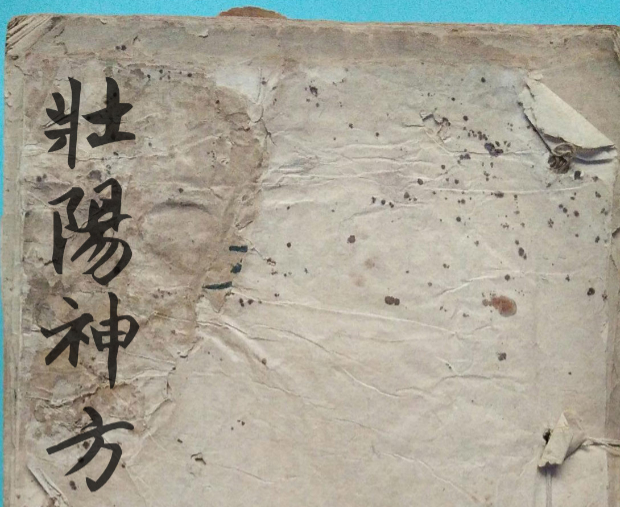 壯陽神方